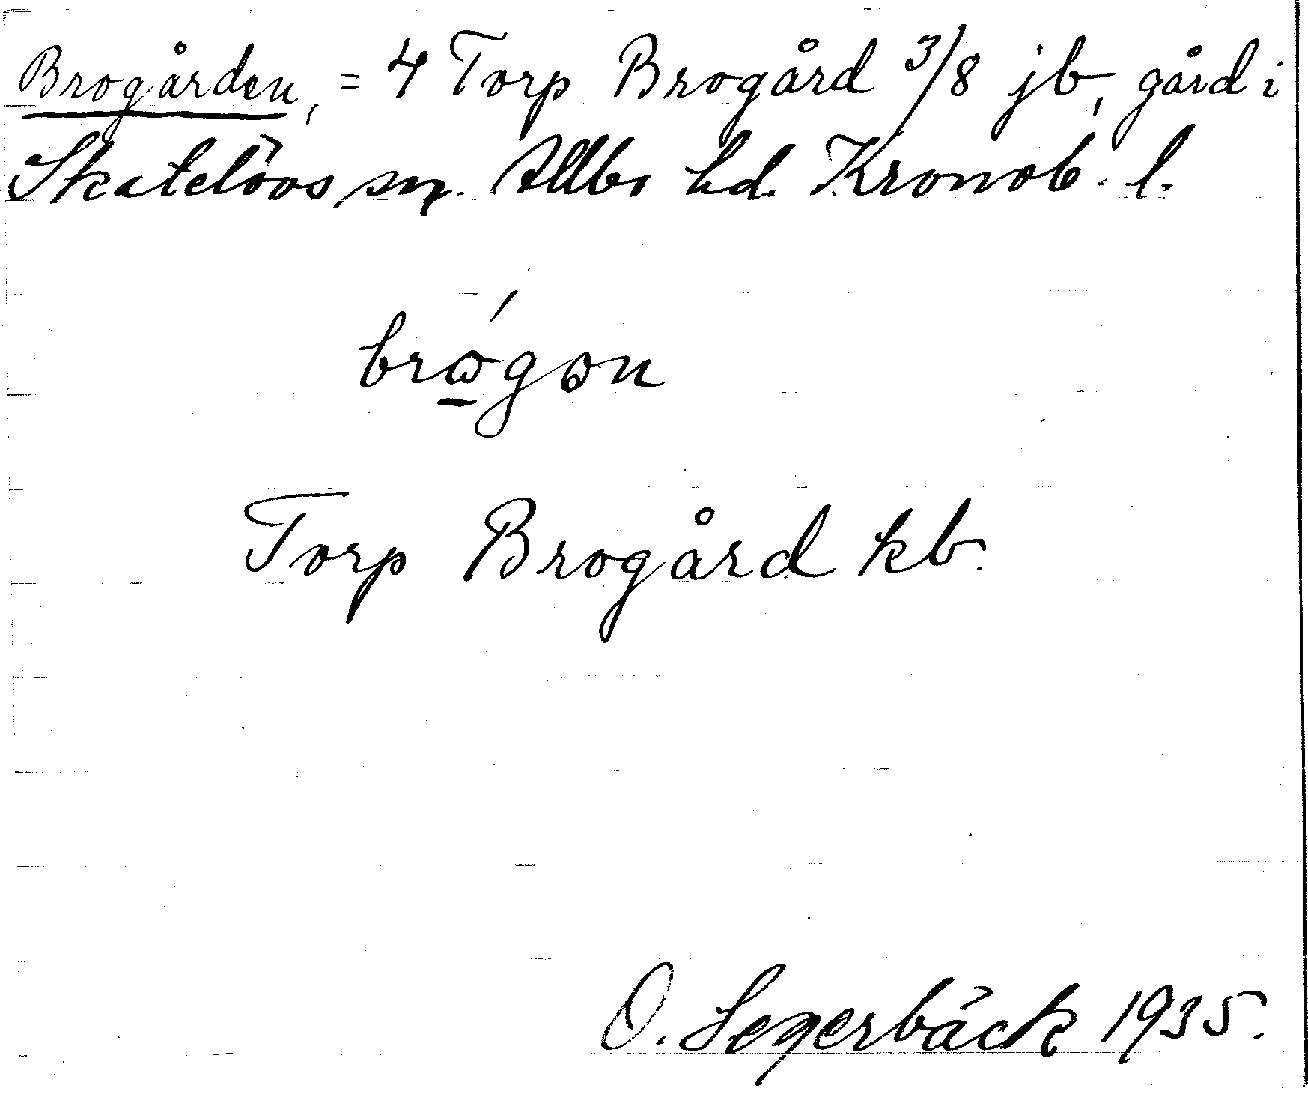 Brogården, = 4 Torp Brogård 3/8 jb, gård i
Skatelövs sn. Allbo hd. Kronob. l.
brώ̲gɷn
Torp Brogård kb.
O. Segerbäck 1935.